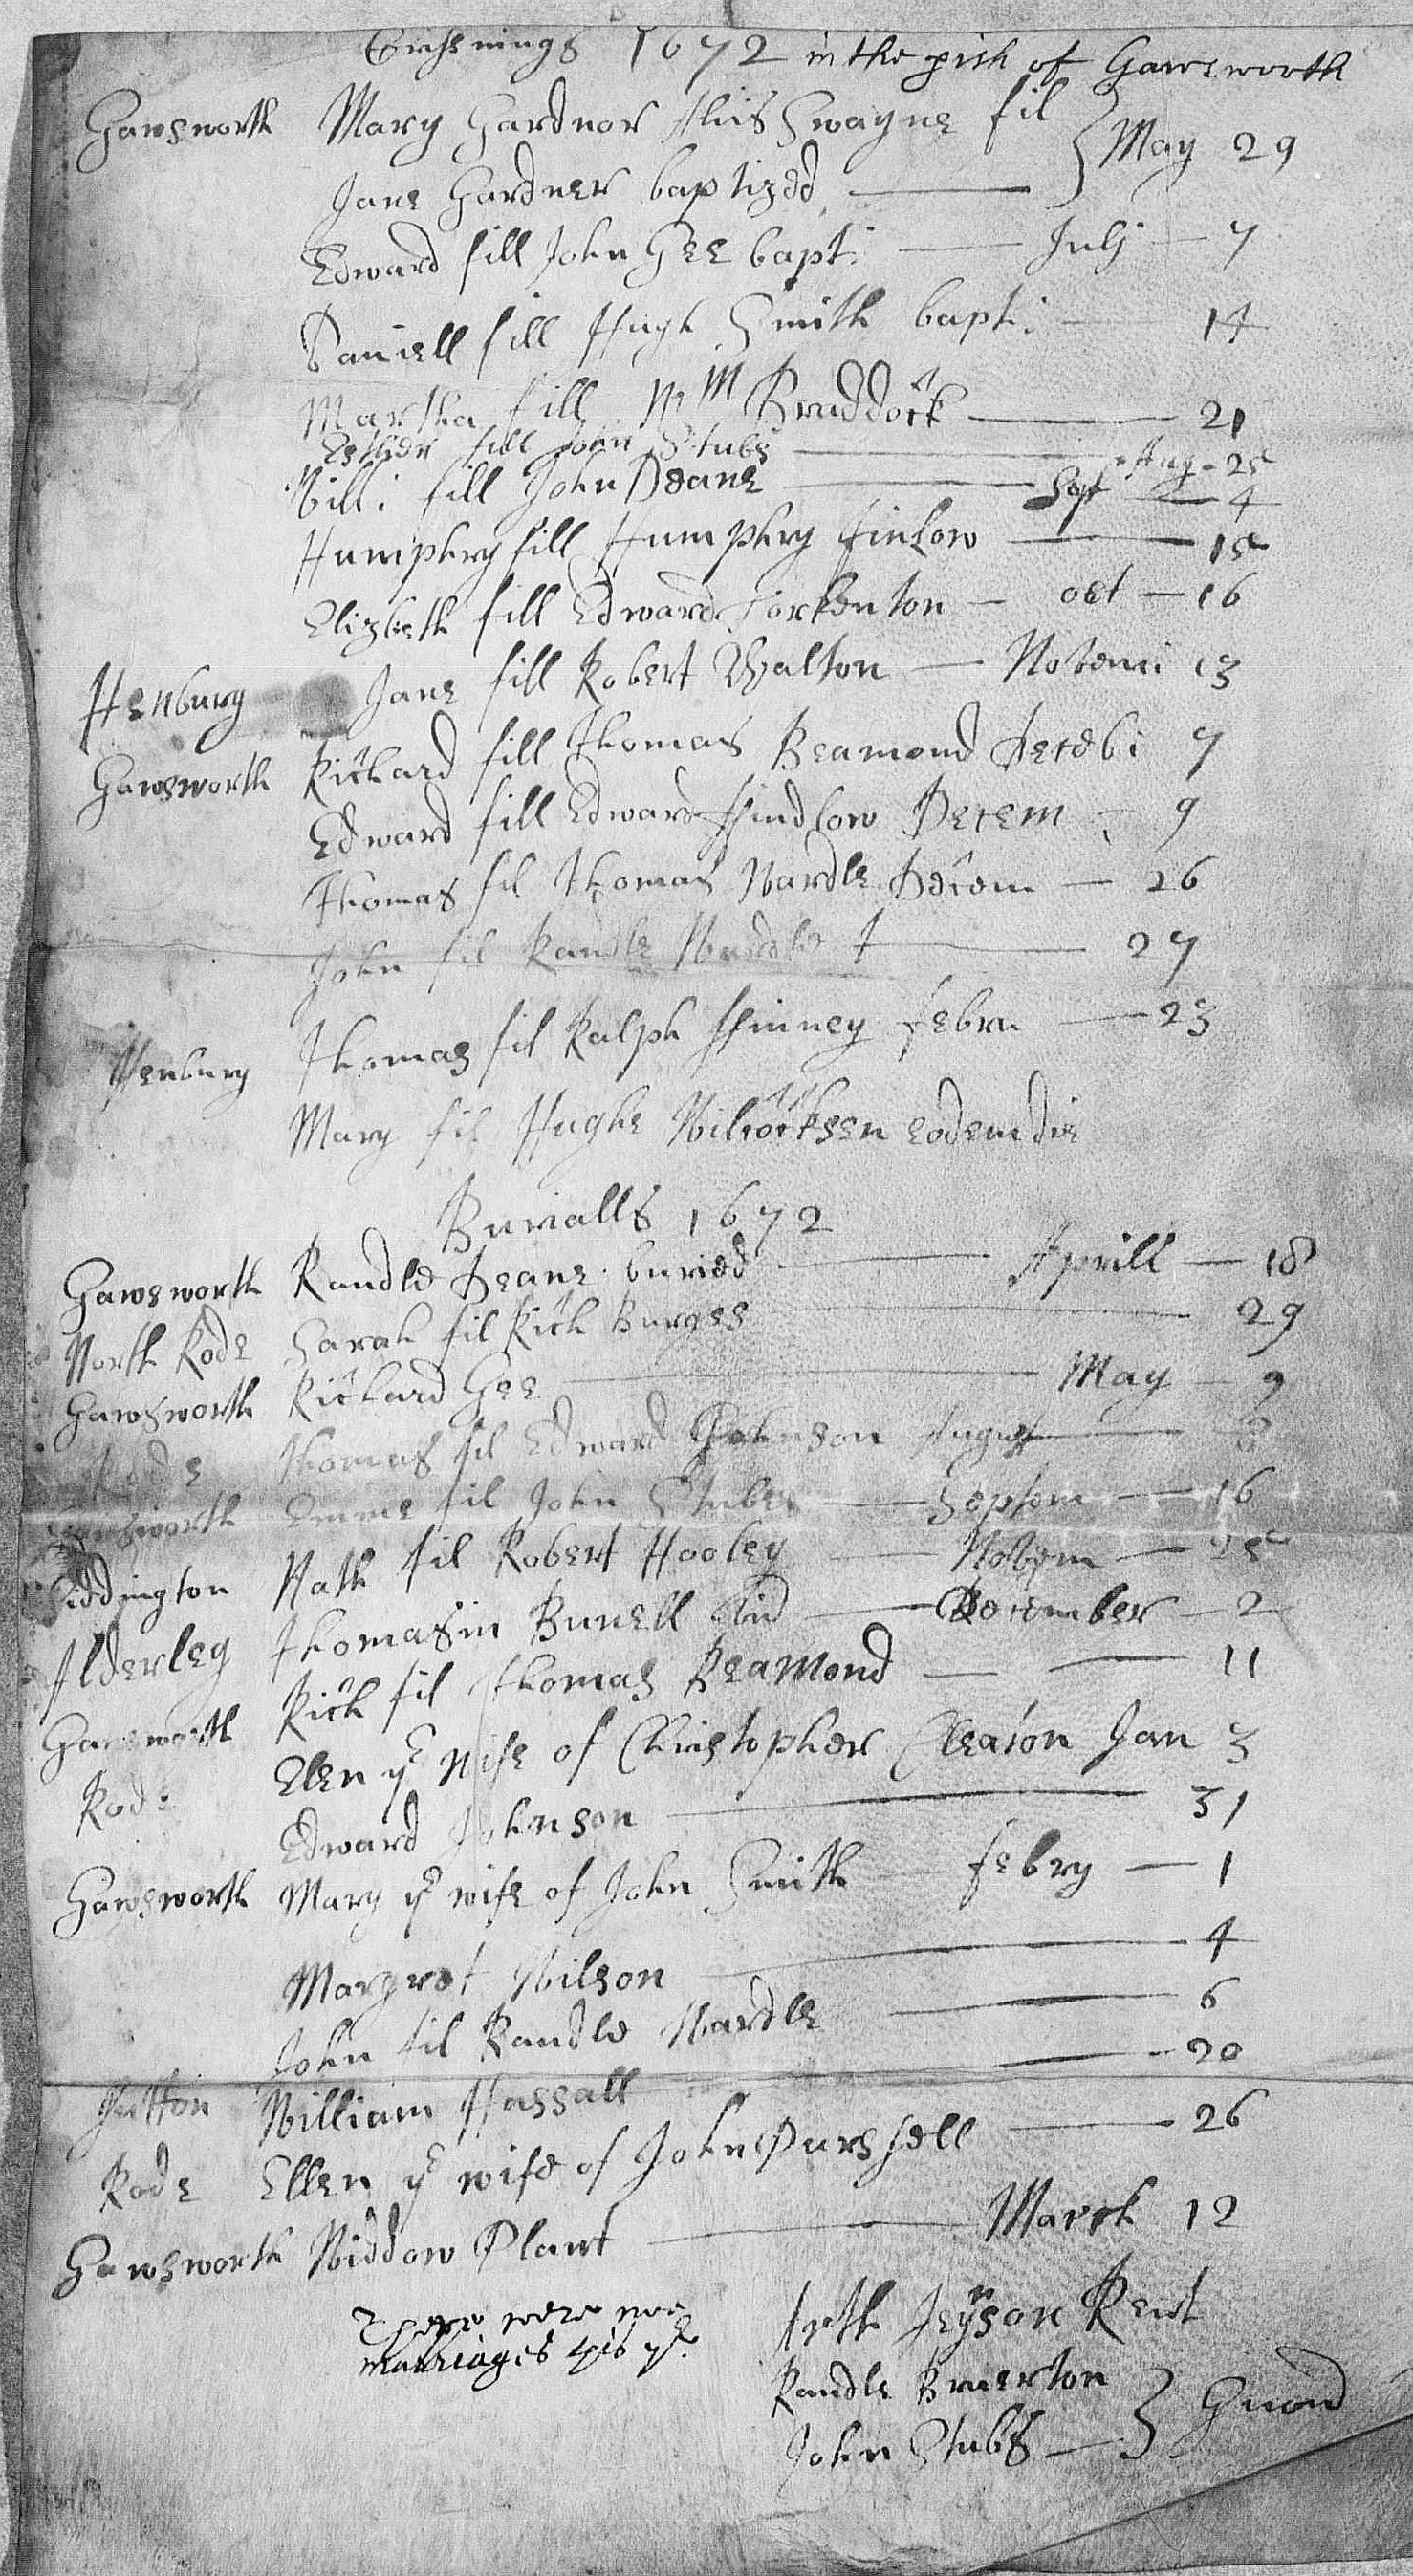 Crissnings 1672 in the pish of Gawsworth
Gawsworth Mary Gardnor Alis Swayne fil
Jane Gardner baptizdd } May 29
Edward fill John Gee bapt: July 7
Daniell fill Hugh Smith bapt: 14
Martha fill Wm Bruddock 21
Esthdr fill John Stubs Aug 25
Will: fill John Deane Sept 4
Humphry fill Humphry Finlow 15
Elizbeth fill Edward Lorkenton oct 16
Henbury Jane fill Robert Walton Novemi 13
Gawsworth Richard fill Thomas Beamond Decebi 7
Edward fill Edward ffindlow Decem 9
Thomas fil Thomas Wardle Decem 26
John fil Randle Wardle 27
Henbury Thomas fil Ralph ffinney Febru 23
Mary fil Hughe Wilcocksen eodem die
Burialls 1672
Gawsworth Randle Deane buried Aprill 18
North Rode Sarah fil Rich Burges 29
Gawsworth Richard Gee May 9
Rode Thomas fil Edward Johnson August
Gawsworth Emme fil John Stubes Septem 16
Siddington Nath fil Robert Hooley Novem 25
Alderley Thomasin Burell December 2
Gawsworth Rich fil Thomas Beamond 11
Rode Elen ye wife of Christopher Cleaton Jan 3
Edward Johnson 31
Gawsworth Mary ye wife of John Smith Febry 1
Margret Wilson 4
John fil Randle Wardle 6
Sutton William Hassall 20
Rode Ellen ye wife of John Purssell 26
Gawsworth Widdow Plant March 12
There were noe
marriages this yr.
Arth Jeynson Rect
Randle Bruerton
John Stubs } Guard